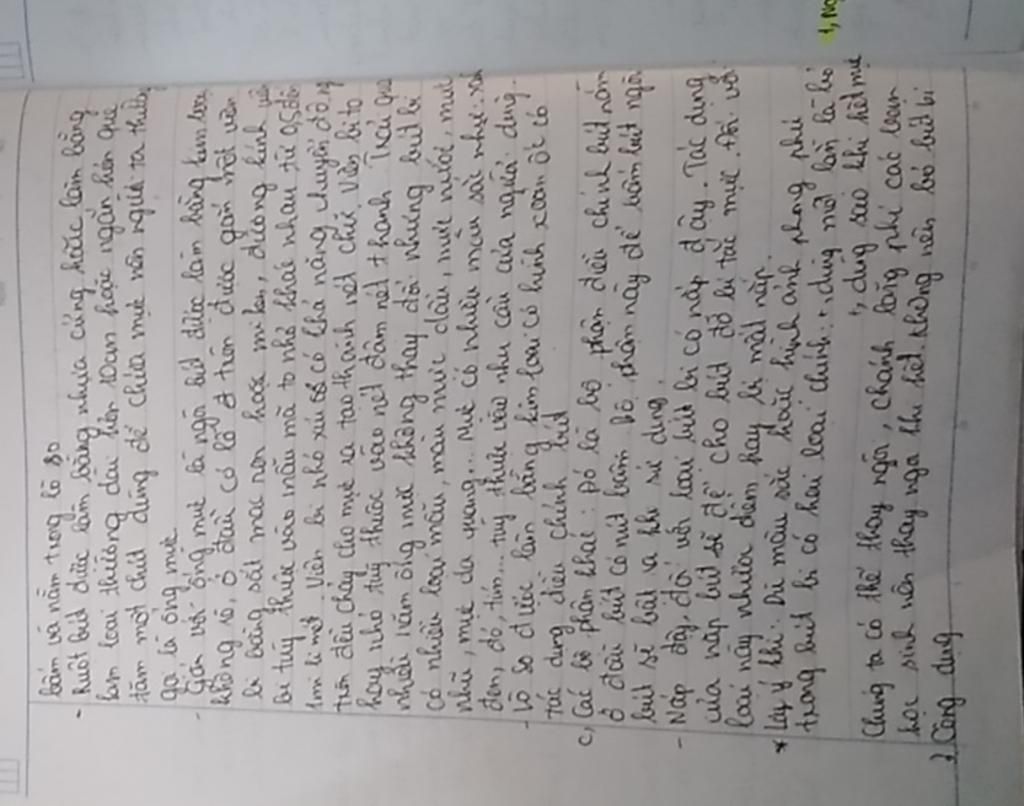 bấm và nằm trong lò so
- Ruột bút được làm bằng nhựa cứng hoặc làm bằng
kim loại thường dài hơn 10cm hoặc ngắn hơn que
tăm một chút dùng để chứa mực nên người ta thường
gọi là ống mực
- Gắn với ống mực là ngòi bút được làm bằng kim loại
không rỉ, ở đầu có lỗ ở trên được gắn một viên
bi bằng sắt mạ hoặc niken, đường kính viên
bi tùy thuộc vào mẫu mã to nhỏ khác nhau từ 0,5 đến
1mi li mét. Viên bi nhỏ xíu có khả năng chuyển động
tròn đều chảy cho mực ra tạo thành nét chữ. Viên bi to
hay nhỏ tuỳ thuộc vào nét đậm nét thanh. Trải qua
nhiều năm ống mực không thay đổi nhưng bút bi
có nhiều loại mẫu, màu mực dầu, mực nước, mực
nhũ, mực dạ quang... Mực có nhiều màu sắc như: xanh
đen, đỏ, tím... tuỳ thuộc vào nhu cầu của người dùng.
- Lò so được làm bằng kim loại có hình xoắn ốc có
tác dụng điều chỉnh bút
c, Các bộ phận khác: Đó là bộ phận điều chỉnh bút nằm
ở đầu bút có nút bấm. bộ phận này để bấm bút ngòi
bút sẽ bật ra khi sử dụng.
- Nắp đậy, đối với loại bút bi có nắp đậy. Tác dụng
của nắp bút sẽ để cho bút đỡ bị tắc mực. Đối với
loại này nhược điểm hay bị mất nắp.
* Lưu ý khi: Dù màu sắc hoặc hình ảnh phong phú
trong bút bi có hai loại chính: +, dùng một lần là bỏ
+, dùng sao khi hết mực
Chúng ta có thể thay ngòi, chánh lãng phí các bạn
học sinh nên thay ngòi khi hết không nên bỏ bút bi
2. Công dụng
1,